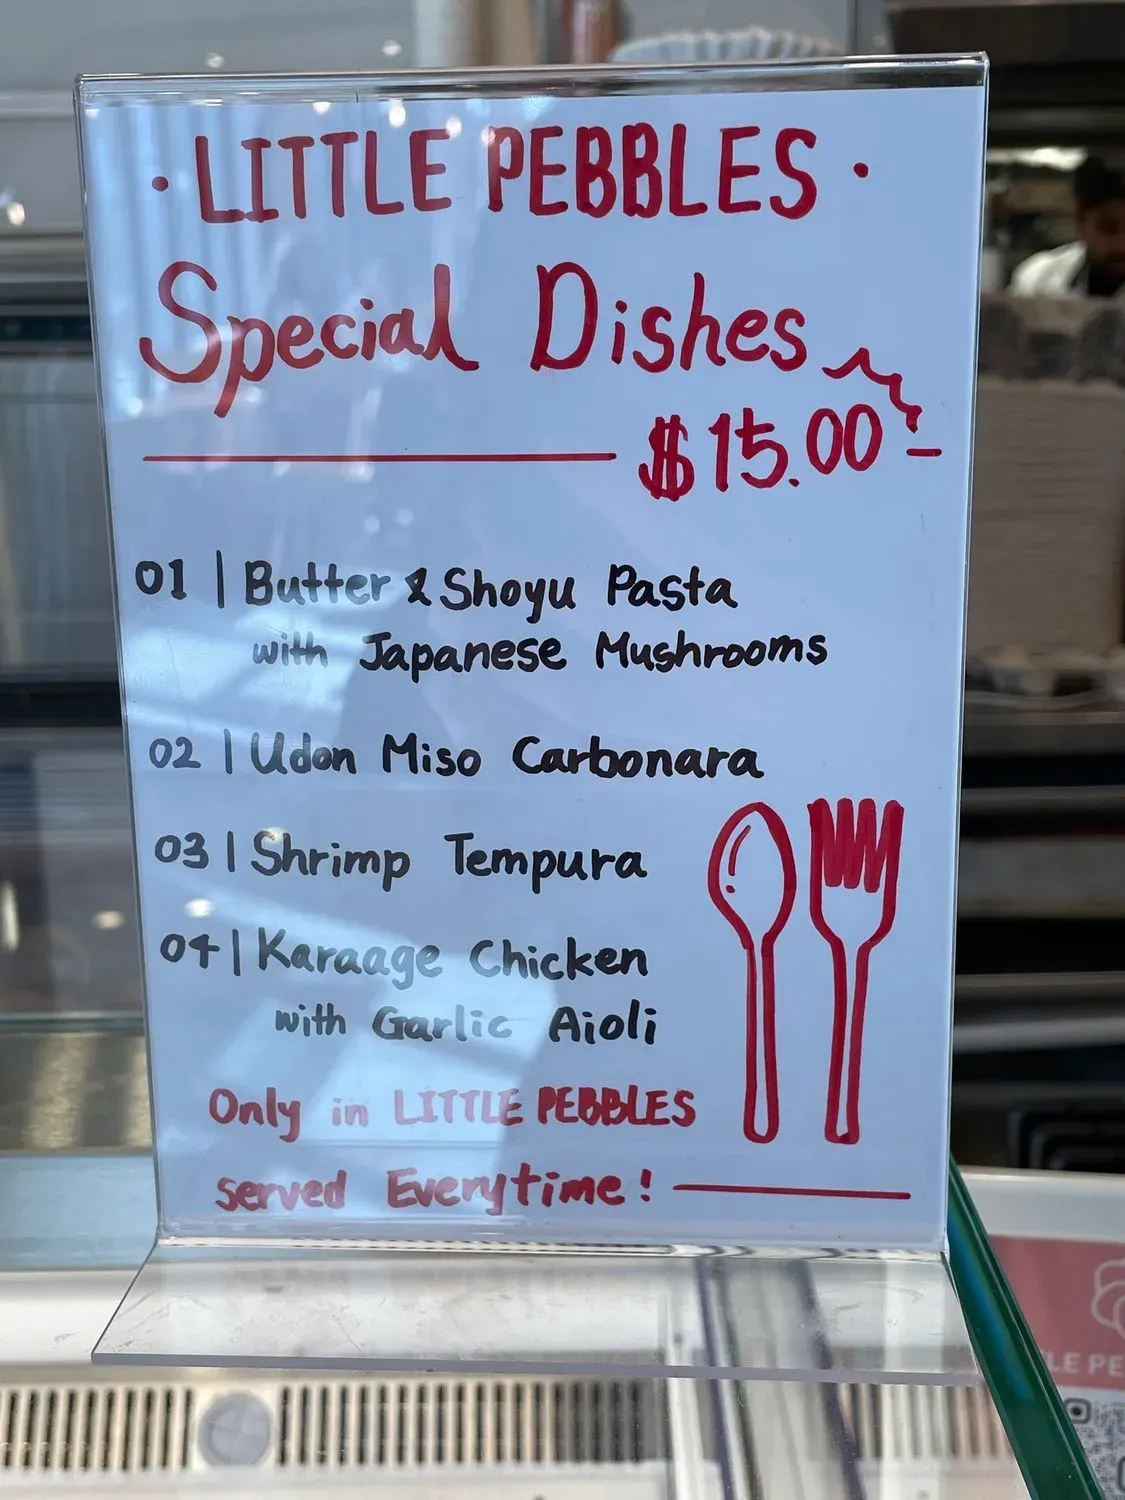 · LITTLE PEBBLES ·
Special Dishes
$15.00
01 | Butter & Shoyu Pasta
with Japanese Mushrooms
02 | Udon Miso Carbonara
03 | Shrimp Tempura
04 | Karaage Chicken
with Garlic Aioli
Only in LITTLE PEBBLES
served Everytime!
LE PE